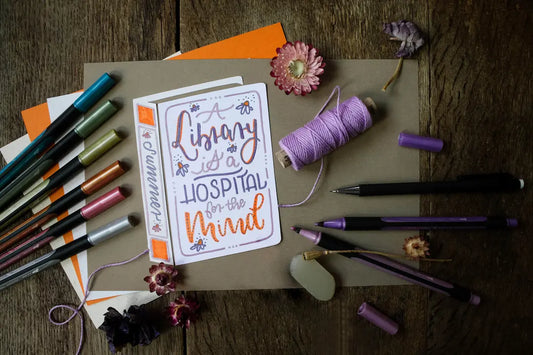 Summer
A
Library
is a
HOSPITAL
for the
Mind